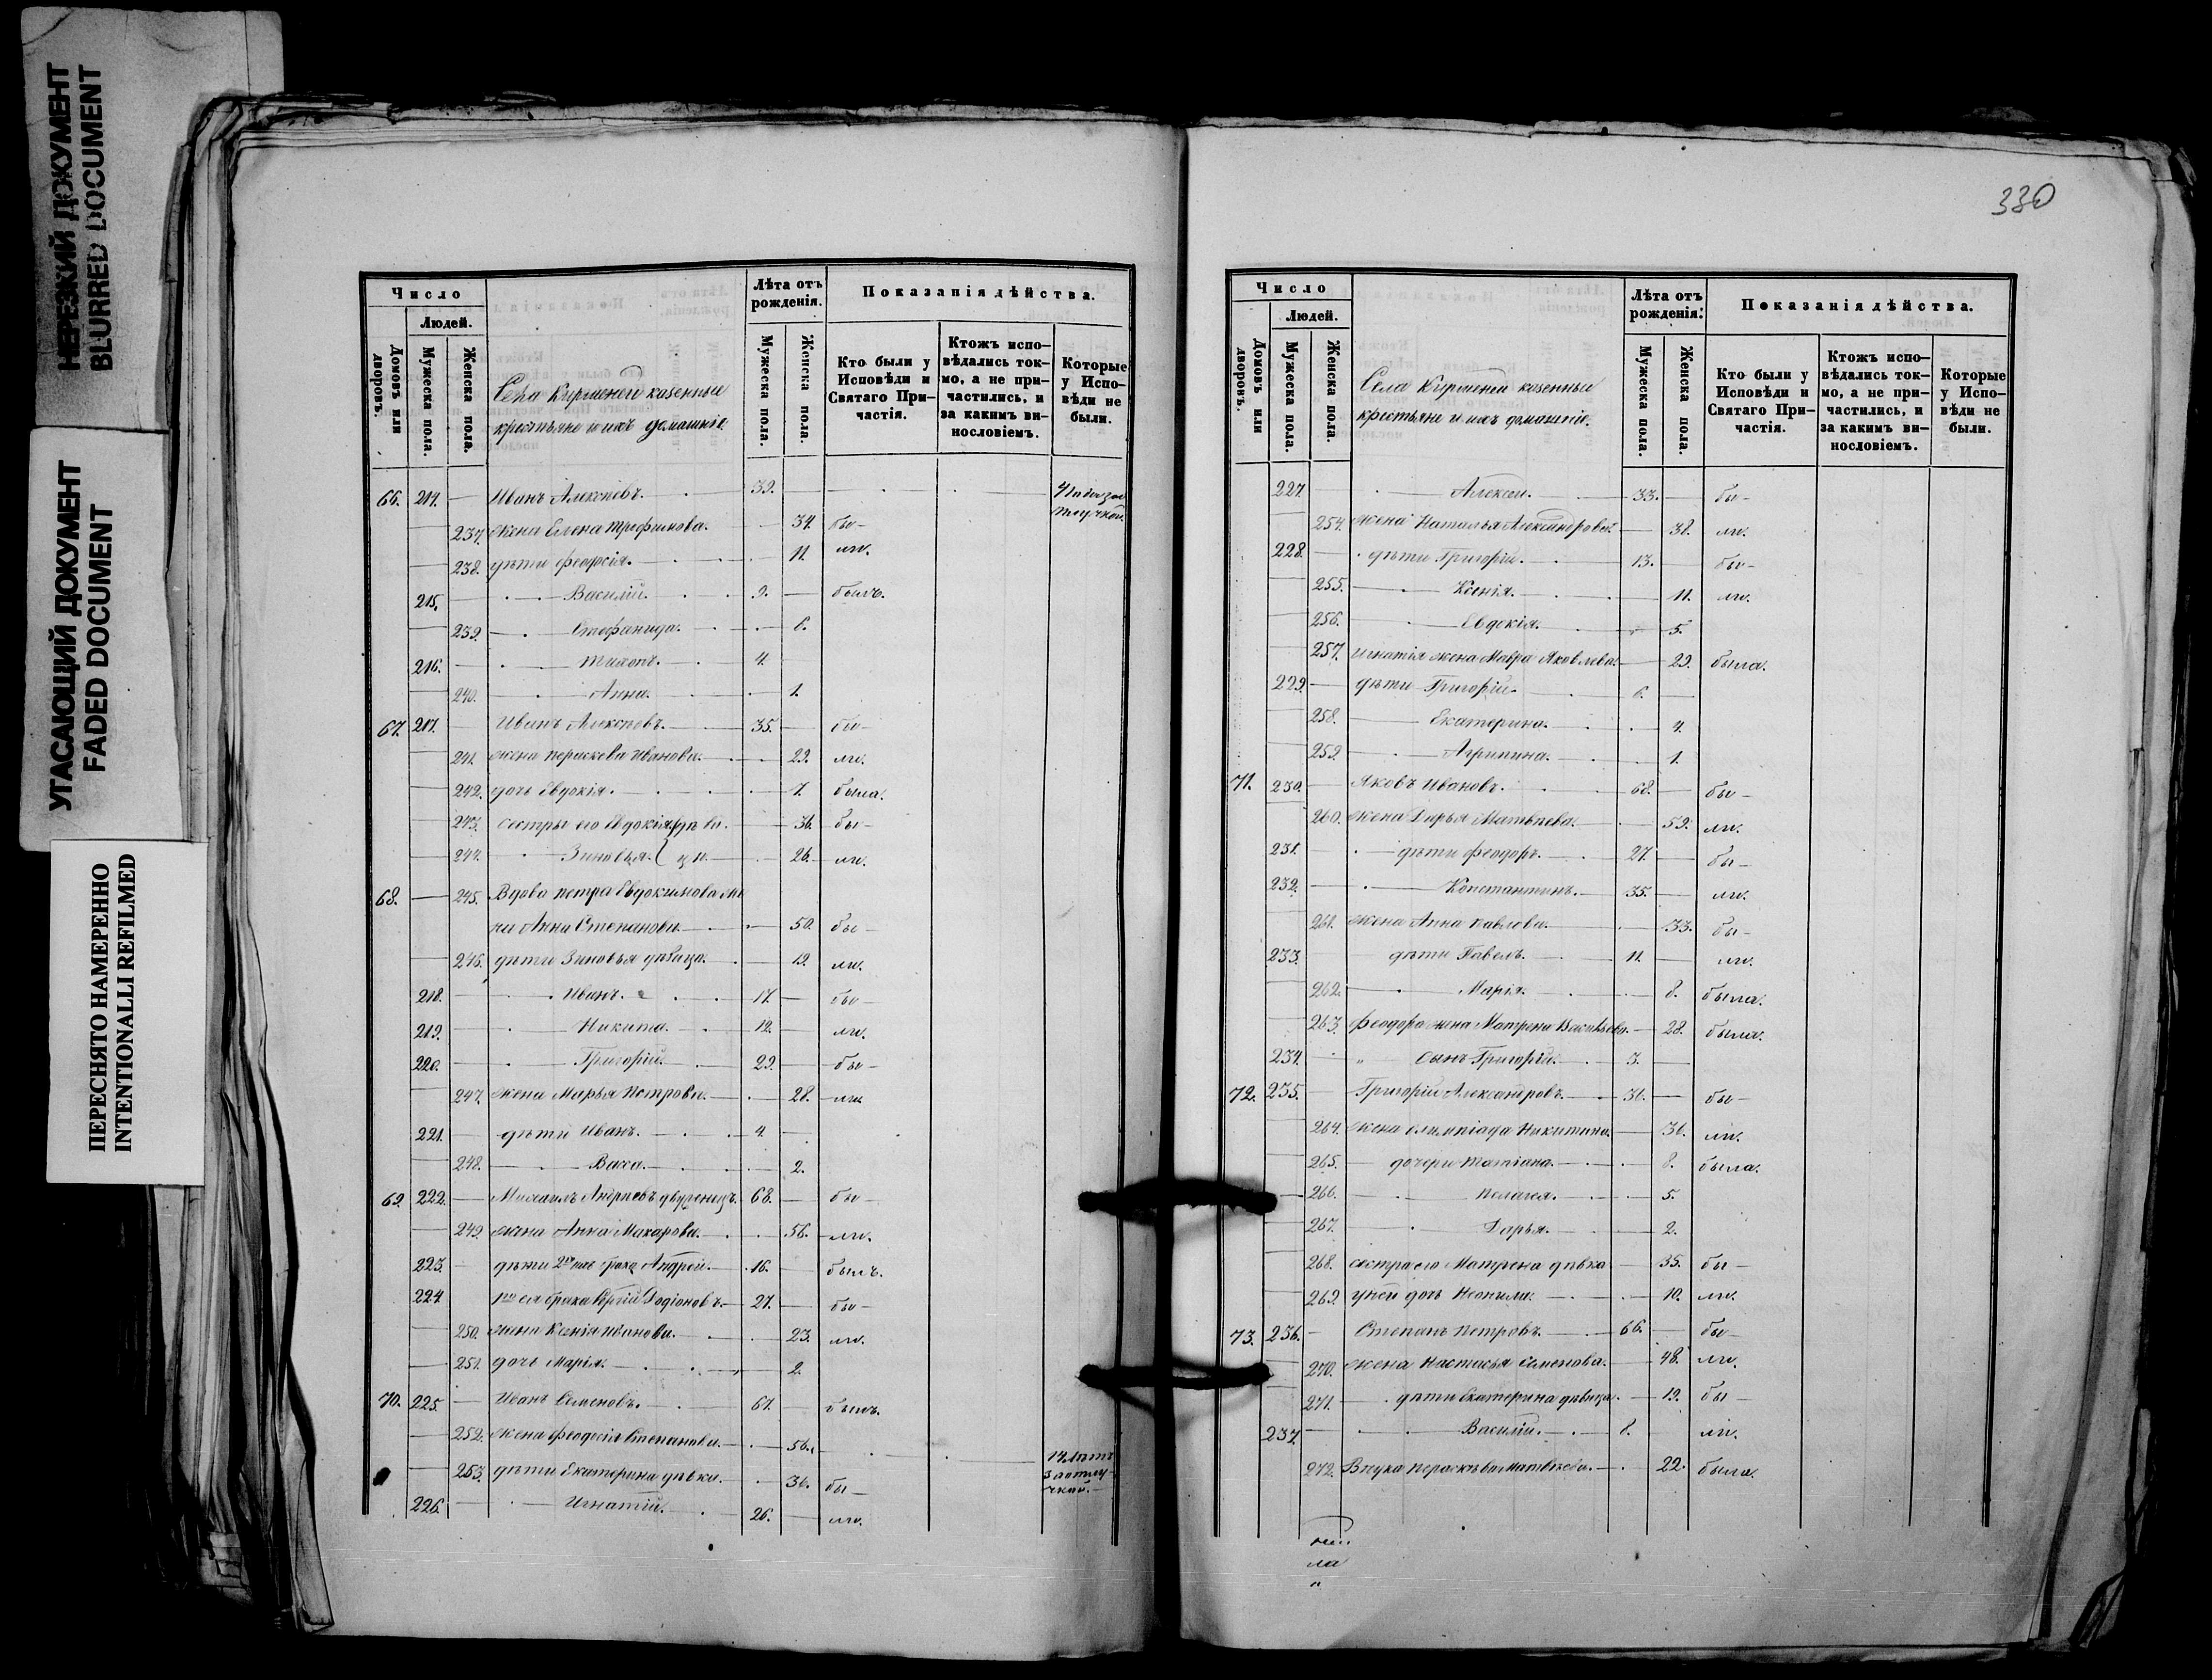 НЕРЕЗКИЙ ДОКУМЕНТ
BLURRED DOCUMENT
УГАСАЮЩИЙ ДОКУМЕНТ
FADED DOCUMENT
ПЕРЕСНЯТО НАМЕРЕННО
INTENTIONALLI REFILMED
Число
Людей.
Домовъ или дворовъ.
Мужеска пола.
Женска пола.
Села казенные
крестьяне и ихъ домашніе.
Лѣта отъ рожденія.
Мужеска пола.
Женска пола.
Показанія дѣйства.
Кто были у Исповѣди и Святаго Причастія.
Ктожъ исповѣдались токмо, а не причастились, и за какимъ винословіемъ.
Которые у Исповѣди не были.
66. 214. Иванъ Алексѣевъ. 39.
237. жена Елена Трофимова. 34. бы-
238. дѣти Феодосія. 11. ли.
215. Василій. 9. былъ.
239. Стефанида. 6.
216. Тихонъ. 4.
240. Анна. 1.
67. 217. Иванъ Алексѣевъ. 35. бы-
241. жена Параскева Иванова. 29. ли.
242. дочь Евдокія. 7. была.
243. сестры его Евдокія дѣви. 36. бы-
244. Зиновья. цы. 26. ли.
68. 245. Вдова Петра Евдокимова
Анна Степанова. 50. бы-
246. дѣти Зиновья дѣвица. 19. ли.
218. Иванъ. 17. бы-
219. Никита. 12. ли.
220. Григорій. 29. бы-
247. жена Марья Петрова. 28. ли.
221. дѣти Иванъ. 4.
248. Васса. 2.
69. 222. Михаилъ Андреевъ двуженецъ. 68. бы-
249. жена Анна Макарова. 56. ли.
223. дѣти 2го ихъ брака Андрей. 16. былъ.
224. 1го ея брака Сергій Родіоновъ. 27. бы-
250. жена Ксенія Иванова. 23. ли.
251. дочь Марія. 2.
70. 225. Иванъ Семеновъ. 61. былъ.
252. жена Феодосія Степанова. 56. 14 лѣтъ
за отлучкой.
253. дѣти Екатерина дѣвка. 36. бы-
226. Игнатій. 26. ли.
330
Число
Людей.
Домовъ или дворовъ.
Мужеска пола.
Женска пола.
Села казенные
крестьяне и ихъ домашніе.
Лѣта отъ рожденія.
Мужеска пола.
Женска пола.
Показанія дѣйства.
Кто были у Исповѣди и Святаго Причастія.
Ктожъ исповѣдались токмо, а не причастились, и за какимъ винословіемъ.
Которые у Исповѣди не были.
227. Алексей. 33. бы-
254. жена Наталья Александрова. 38. ли.
228. дѣти Григорій. 13. бы-
255. Ксенія. 11. ли.
256. Евдокія. 5.
257. Игнатія жена Мавра Яковлева. 29. была.
229. дѣти Григорій. 6.
258. Екатерина. 4.
259. Агрипина. 1.
71. 230. Яковъ Ивановъ. 68. бы-
260. жена Дарья Матвѣева. 59. ли.
231. дѣти Феодоръ. 27. бы-
232. Константинъ. 35. ли.
261. жена Анна Павлова. 33. бы-
233. дѣти Павелъ. 11. ли.
262. Марія. 8. была.
263. Феодора жена Матрена Васильева. 28. была.
234. " сынъ Григорій. 3.
72. 235. Григорій Александровъ. 31. бы-
264. жена Олимпіада Никитина. 36. ли.
265. дочери Татіана. 8. была.
266. Пелагея. 5.
267. Дарья. 2.
268. сестра его Матрена дѣвка. 35. бы-
269. у ней дочь Неонила. 10. ли.
73. 236. Степанъ Петровъ. 66. бы-
270. жена Настасья Семенова. 48. ли.
271. дѣти Екатерина дѣвица. 19. бы-
237. Василій. 8. ли.
272. Внука Параскева Матвѣева. 22. была.
ла
"